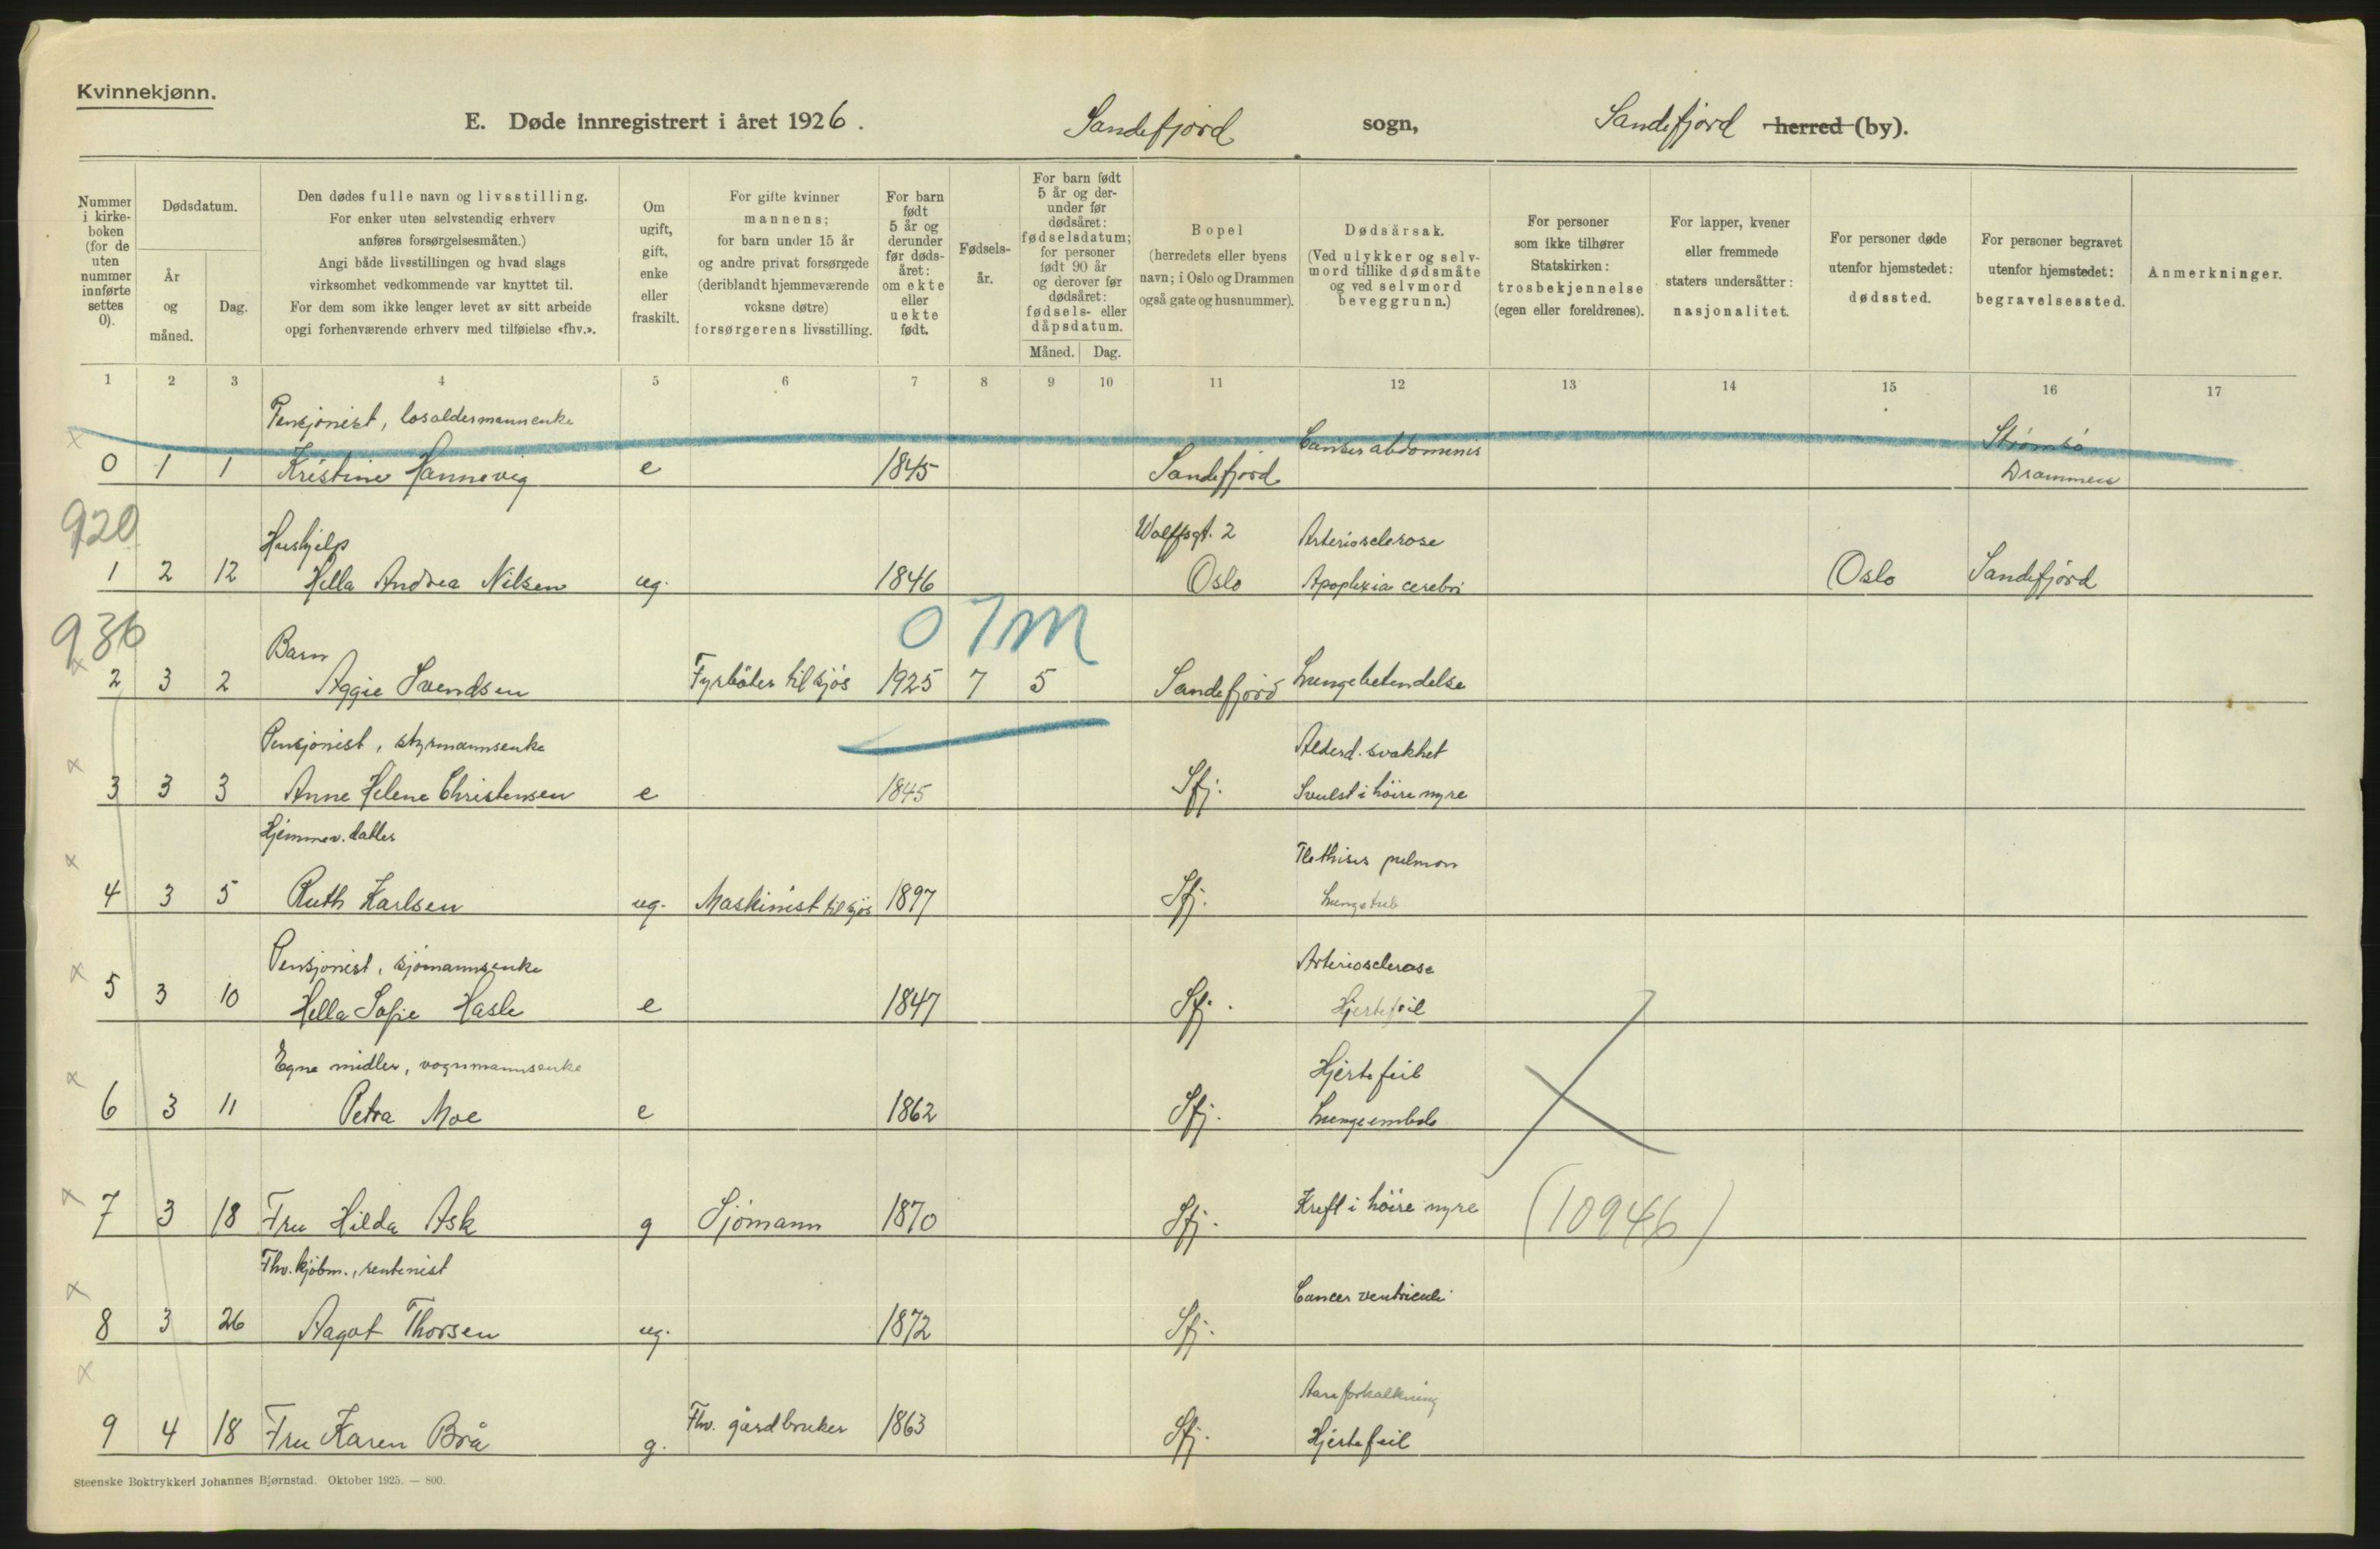 Kvinnekjønn.
E. Døde innregistrert i året 1926. Sandefjord sogn, Sandefjord herred (by).
Nummer i kirke-boken (for de uten nummer innførte settes 0).
Dødsdatum.
År og måned.
Dag.
Den dødes fulle navn og livsstilling.
For enker uten selvstendig erhverv
anføres forsørgelsesmåten.)
Angi både livsstillingen og hvad slags
virksomhet vedkommende var knyttet til.
For dem som ikke lenger levet av sitt arbeide
opgi forhenværende erhverv med tilføielse «fhv.».
Om ugift, gift, enke eller fraskilt.
For gifte kvinner
mannens;
for barn under 15 år
og andre privat forsørgede
(deriblandt hjemmeværende
voksne døtre)
forsørgerens livsstilling.
For barn født 5 år og derunder før døds-året: om ekte eller uekte født.
Fødsels-år.
For barn født 5 år og der-under før dødsåret: fødselsdatum; for personer født 90 år og derover før dødsåret: fødsels- eller dåpsdatum.
Måned. Dag.
Bopel
(herredets eller byens
navn; i Oslo og Drammen
også gate og husnummer).
Dødsårsak.
(Ved ulykker og selv-
mord tillike dødsmåte
og ved selvmord
beveggrunn.)
For personer
som ikke tilhører
Statskirken:
trosbekjennelse
(egen eller foreldrenes).
For lapper, kvener
eller fremmede
staters undersåtter:
nasjonalitet.
For personer døde
utenfor hjemstedet:
dødssted.
For personer begravet
utenfor hjemstedet:
begravelsessted.
Anmerkninger.
1 2 3 4 5 6 7 8 9 10 11 12 13 14 15 16 17
Pensjonist, losoldermannenke
x Canser abdominis Strømsø
0 1 1 Kristine Hannevig e 1845 Sandefjord Drammen
920 Hushjelp Wolffsgt. 2 Arteriosclerose
1 2 12 Hella Andrea Nilsen ug. 1846 Oslo Apoplexia cerebri Oslo Sandefjord
936 Barn 0 7 m
x 2 3 2 Aggie Svendsen Fyrbøter til sjøs 1925 7 5 Sandefjord Lungebetendelse
Pensjonist, styrmannsenke Alderd. svakhet
x 3 3 3 Anne Helene Christensen e 1845 Sfj. Svulst i høire nyre
Hjemmev. datter pulmon
x 4 3 5 Ruth Karlsen ug. Maskinist til sjøs 1897 Sfj. Lungetub
Pensjonist, sjømannsenke Arteriosclerose
x 5 3 10 Hella Sofie Hasle e 1847 Sfj. Hjertefeil
Egne midler, vognmannsenke Hjertefeil
x 6 3 11 Petra Moe e 1862 Sfj. Lungeemboli
x 7 3 18 Fru Hilda Ask g Sjømann 1870 Sfj. Kreft i høire nyre (10946)
Fhv. kjøbm., rentenist Cancer ventriculi
x 8 3 26 Aagot Thorsen ug. 1872 Sfj.
x Aareforkalkning
9 4 18 Fru Karen Brå g. Fhv. gårdbruker 1863 Sfj. Hjertefeil
Steenske Boktrykkeri Johannes Bjørnstad. Oktober 1925. — 800.